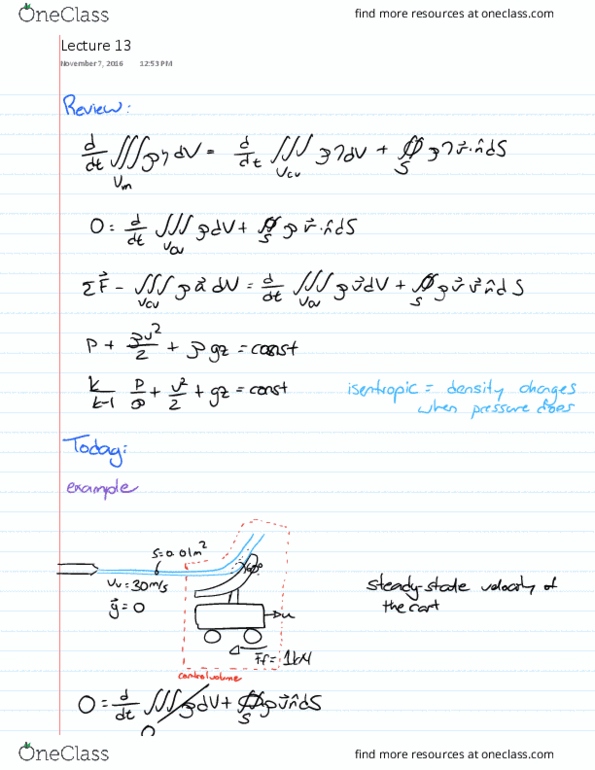 OneClass find more resources at oneclass.com
Lecture 13
November 7, 2016 12:53 PM
Review:
d/dt ∭_Vm ρη dV = d/dt ∭_Vcv ρη dV + ∯_S ρη v⃗·n̂ dS
0 = d/dt ∭_Vcv ρ dV + ∯_S ρ v⃗·n̂ dS
ΣF⃗ - ∭_Vcv ρ a⃗ dV = d/dt ∭_Vcv ρ v⃗ dV + ∯_S ρ v⃗ v⃗ n̂ dS
P + ρv²/2 + ρgz = const
k/k-1 P/ρ + v²/2 + gz = const isentropic = density changes
when pressure does
Today:
example
S=0.01m²
Vv = 30m/s
g⃗ = 0
60°
u
Ff = 1kN
control volume
steady-state velocity of
the cart
0 = d/dt ∭ρdV + ∯_S ρv⃗n̂dS
0
OneClass find more resources at oneclass.com